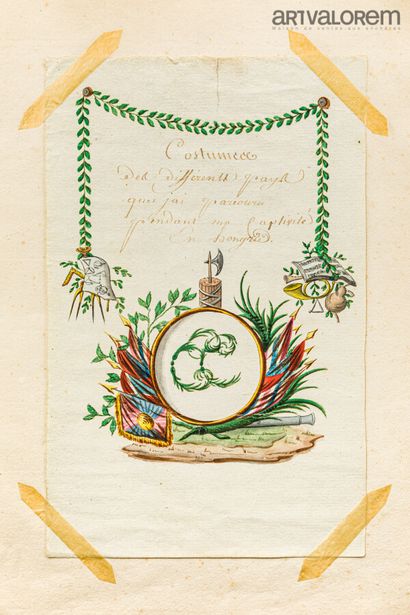 ARTVALOREM
Maison de ventes aux enchères
Costumes
des différents pays
que j'ai parcouru
pendant ma Captivité
En hongrie.